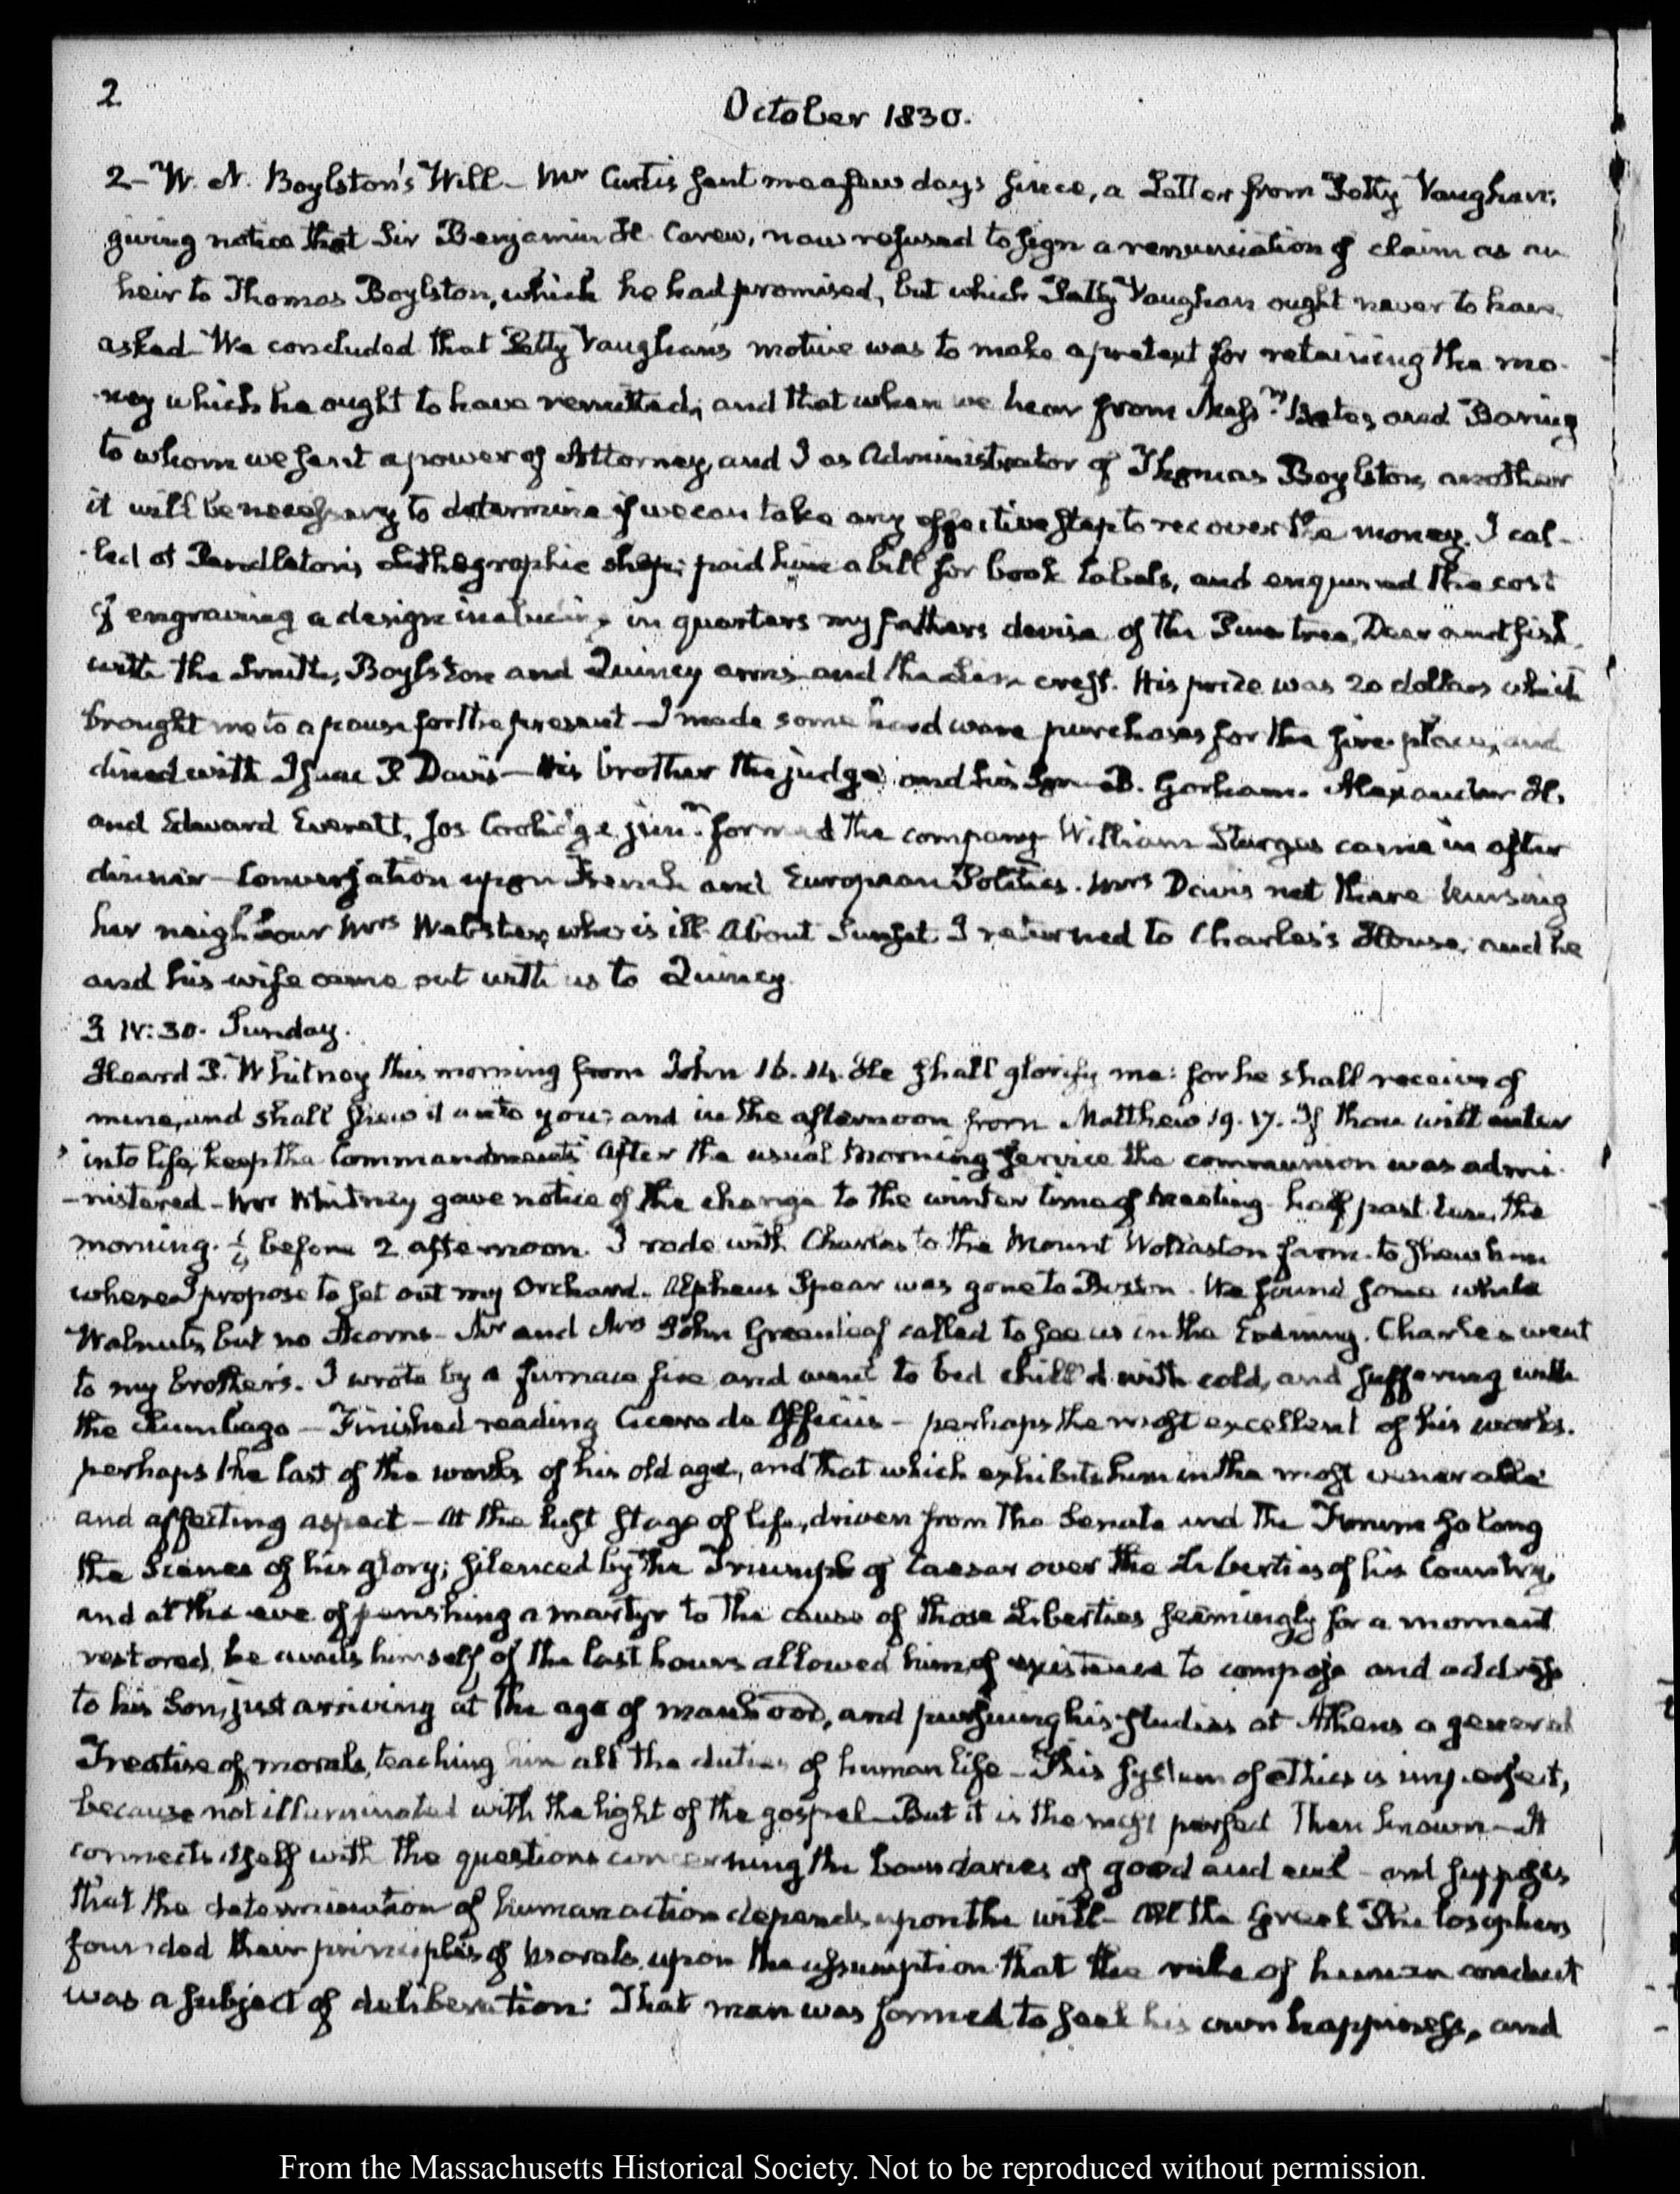 2
October 1830.
2- W. N. Boylston's Will- Mr Curtis sent me a few days since, a Letter from Petty Vaughan;
giving notice that Sir Benjamin H. Carew, now refused to sign a renunciation of claim as an
heir to Thomas Boylston, which he had promised, but which Petty Vaughan ought never to have
asked- We concluded that Petty Vaughan's motive was to make a pretext for retaining the mo-
-ney which he ought to have remitted; and that when we hear from Messrs. Bates and Baring
to whom we sent a power of Attorney, and I as Administrator of Thomas Boylston, another
it will be necessary to determine if we can take any effective step to recover the money. I cal-
-led at Pendleton's Lithographic shop; paid him a bill for book labels, and enquired the cost
of engraving a design including in quarters my father's devise of the Pine tree, Deer and fish,
with the Smith, Boylston and Quincy arms and the Lion crest. His price was 20 dollars which
brought me to a pause for the present- I made some hard ware purchases for the fire-place, and
dined with Isaac P. Davis- His brother the judge and his Son- B. Gorham. Alexander H.
and Edward Everett, Jos Coolidge junr. formed the company- William Sturges came in after
dinner- Conversation upon French and European Politics. Mrs Davis not there nursing
her neighbour Mrs Webster, who is ill. About Sunset I returned to Charles's House, and he
and his wife came out with us to Quincy.
3 IV:30. Sunday.
Heard P. Whitney this morning from John 16. 14. He shall glorify me: for he shall receive of
mine, and shall shew it unto you; and in the afternoon from Matthew 19. 17. If thou wilt enter
into life, keep the Commandments" After the usual morning service the communion was admi-
-nistered- Mr Whitney gave notice of the change to the winter time of meeting- half past ten, the
morning. ¼ before 2 afternoon. I rode with Charles to the Mount Wollaston farm- to shew him
where I propose to set out my Orchard- Alpheus Spear was gone to Boston. We found some white
Walnuts, but no Acorns- Mr and Mrs John Greenleaf called to see us in the Evening. Charles went
to my brother's. I wrote by a furnace fire and went to bed chill'd with cold, and suffering with
the Lumbago- Finished reading Cicero de Officiis- perhaps the most excellent of his works.
perhaps the last of the works of his old age, and that which exhibits him in the most venerable
and affecting aspect- At the last stage of life, driven from the Senate and the Forum so long
the Scenes of his glory; silenced by the Triumph of Caesar over the Liberties of his Country,
and at the eve of perishing a martyr to the cause of those Liberties seemingly for a moment
restored, he avails himself of the last hours allowed him of existence to compose and address
to his Son, just arriving at the age of manhood, and pursuing his studies at Athens a general
Treatise of morals, teaching him all the duties of human life- This system of ethics is imperfect,
because not illuminated with the light of the gospel- But it is the most perfect then known- It
connects itself with the questions concerning the boundaries of good and evil- and supposes
that the determination of human action depends upon the will- All the Greek Philosophers
founded their principles of morals upon the assumption that the rule of human conduct
was a subject of deliberation: That man was formed to seek his own happiness, and
From the Massachusetts Historical Society. Not to be reproduced without permission.